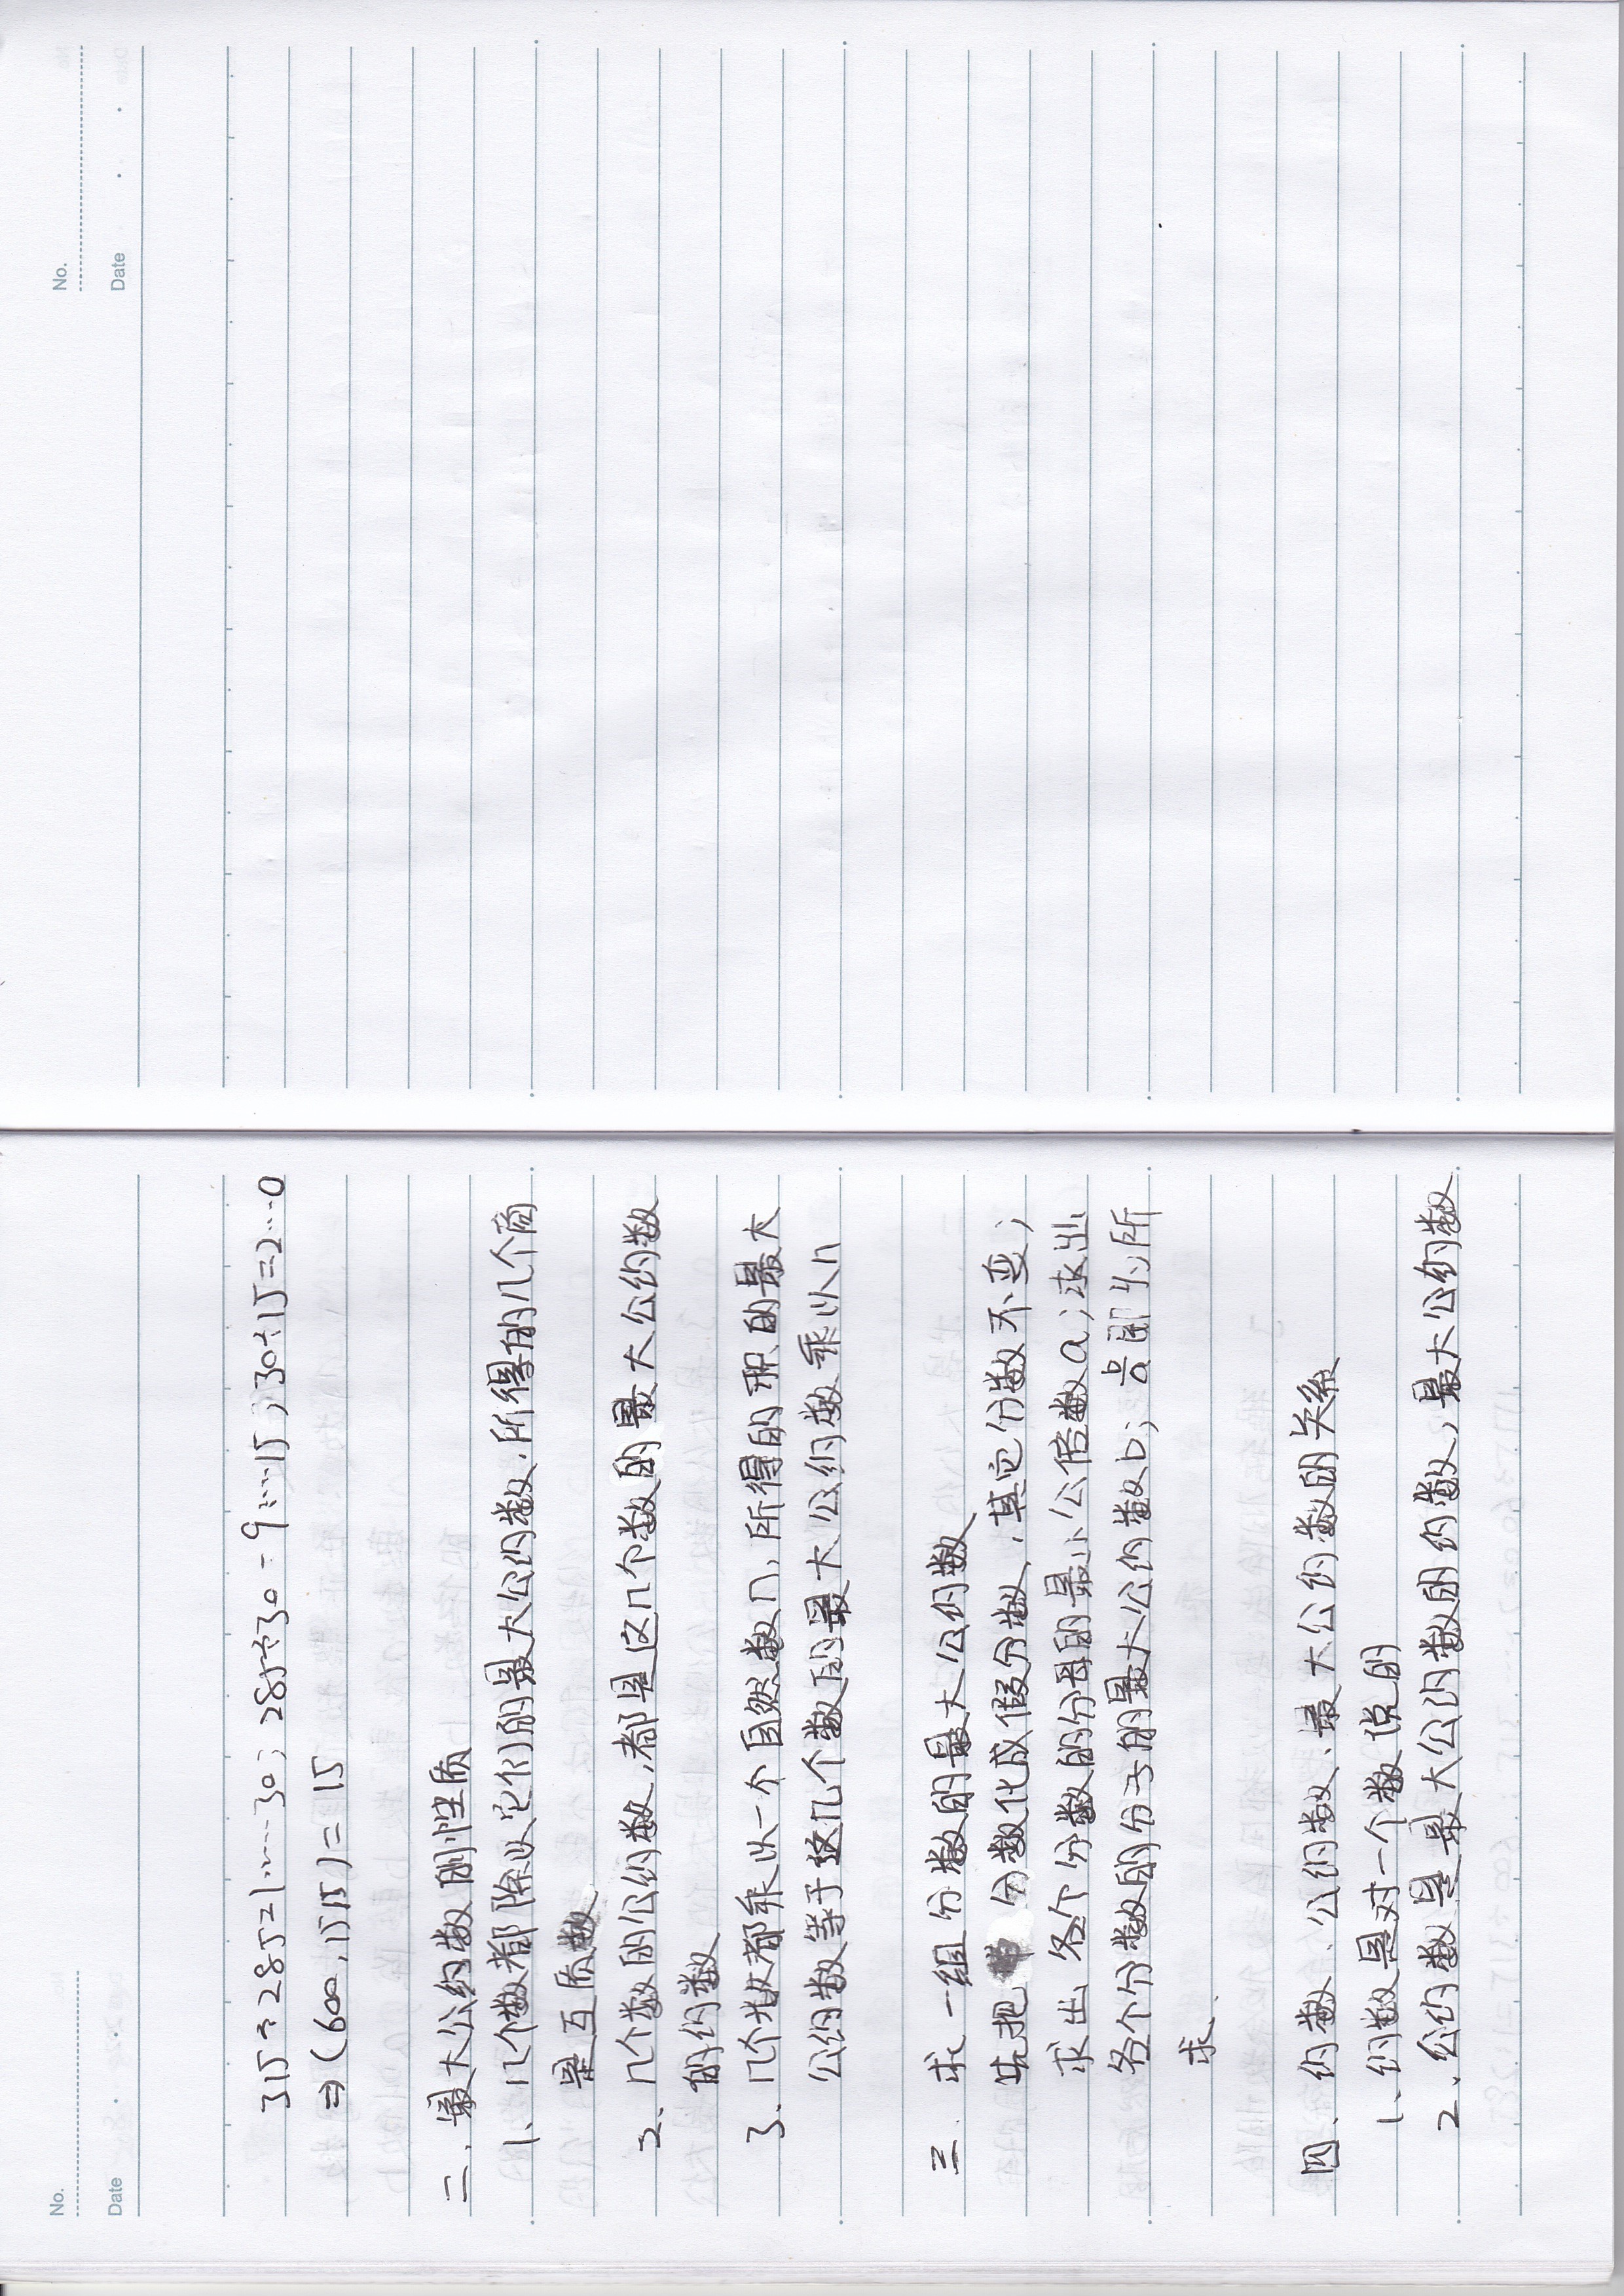 No.
Date
315÷285=1……30；285÷30=9……15；30÷15=2…0
⇒(600,1515)=15
二、最大公约数的性质
1、几个数都除以它们的最大公约数，所得的几个商
是互质数
2、几个数的公约数，都是这几个数的最大公约数
的约数
3、几个数都乘以一个自然数n，所得的积的最大
公约数等于这几个数的最大公约数乘以n
三、求一组分数的最大公约数
先把带分数化成假分数，其它分数不变；
求出各个分数的分母的最小公倍数a；求出
各个分数的分子的最大公约数b；b/a即为所
求.
四、约数、公约数、最大公约数的关系
1、约数是对一个数说的
2、公约数是最大公约数的约数，最大公约数
No.
Date